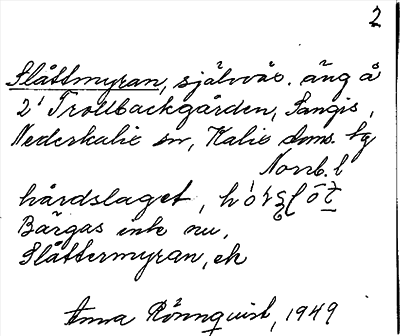 2
Slåttmyran, självvär. äng å
2¹ Trollbackgården, Sangis,
Nederkalix sn, Kalix doms. tg
Norrb. l
hårdslaget,
Bärgas inte nu,
Slåttermyran, ek
Anna Rönnquist, 1949